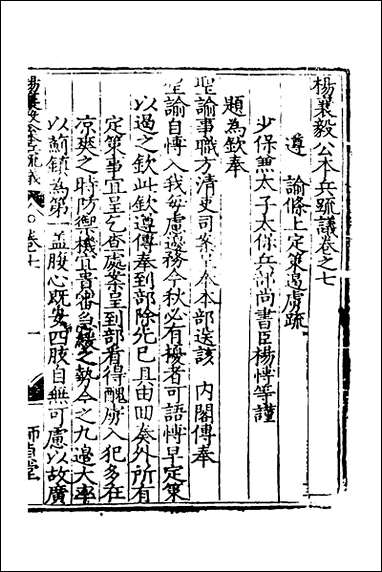 楊襄毅公本兵疏議卷之七
遵諭條上定策遏虜疏
少保兼太子太保兵部尚書臣楊博等謹
題為欽奉
聖諭事職方清吏司案呈奉本部送該內閣傳奉
聖諭自博入我每慮邊務今秋必有擾者可語博早定策
以遏之欽此欽遵傳奉到部除先已具由回奏外所有
定策事宜呈乞查處案呈到部看得醜虜入犯多在
涼爽之時防禦機宜貴審急緩之勢今之九邊大率
以薊鎮為第一蓋腹心既安四肢自無可慮以故廣
楊襄毅公本兵疏議 卷七 一 師貞堂